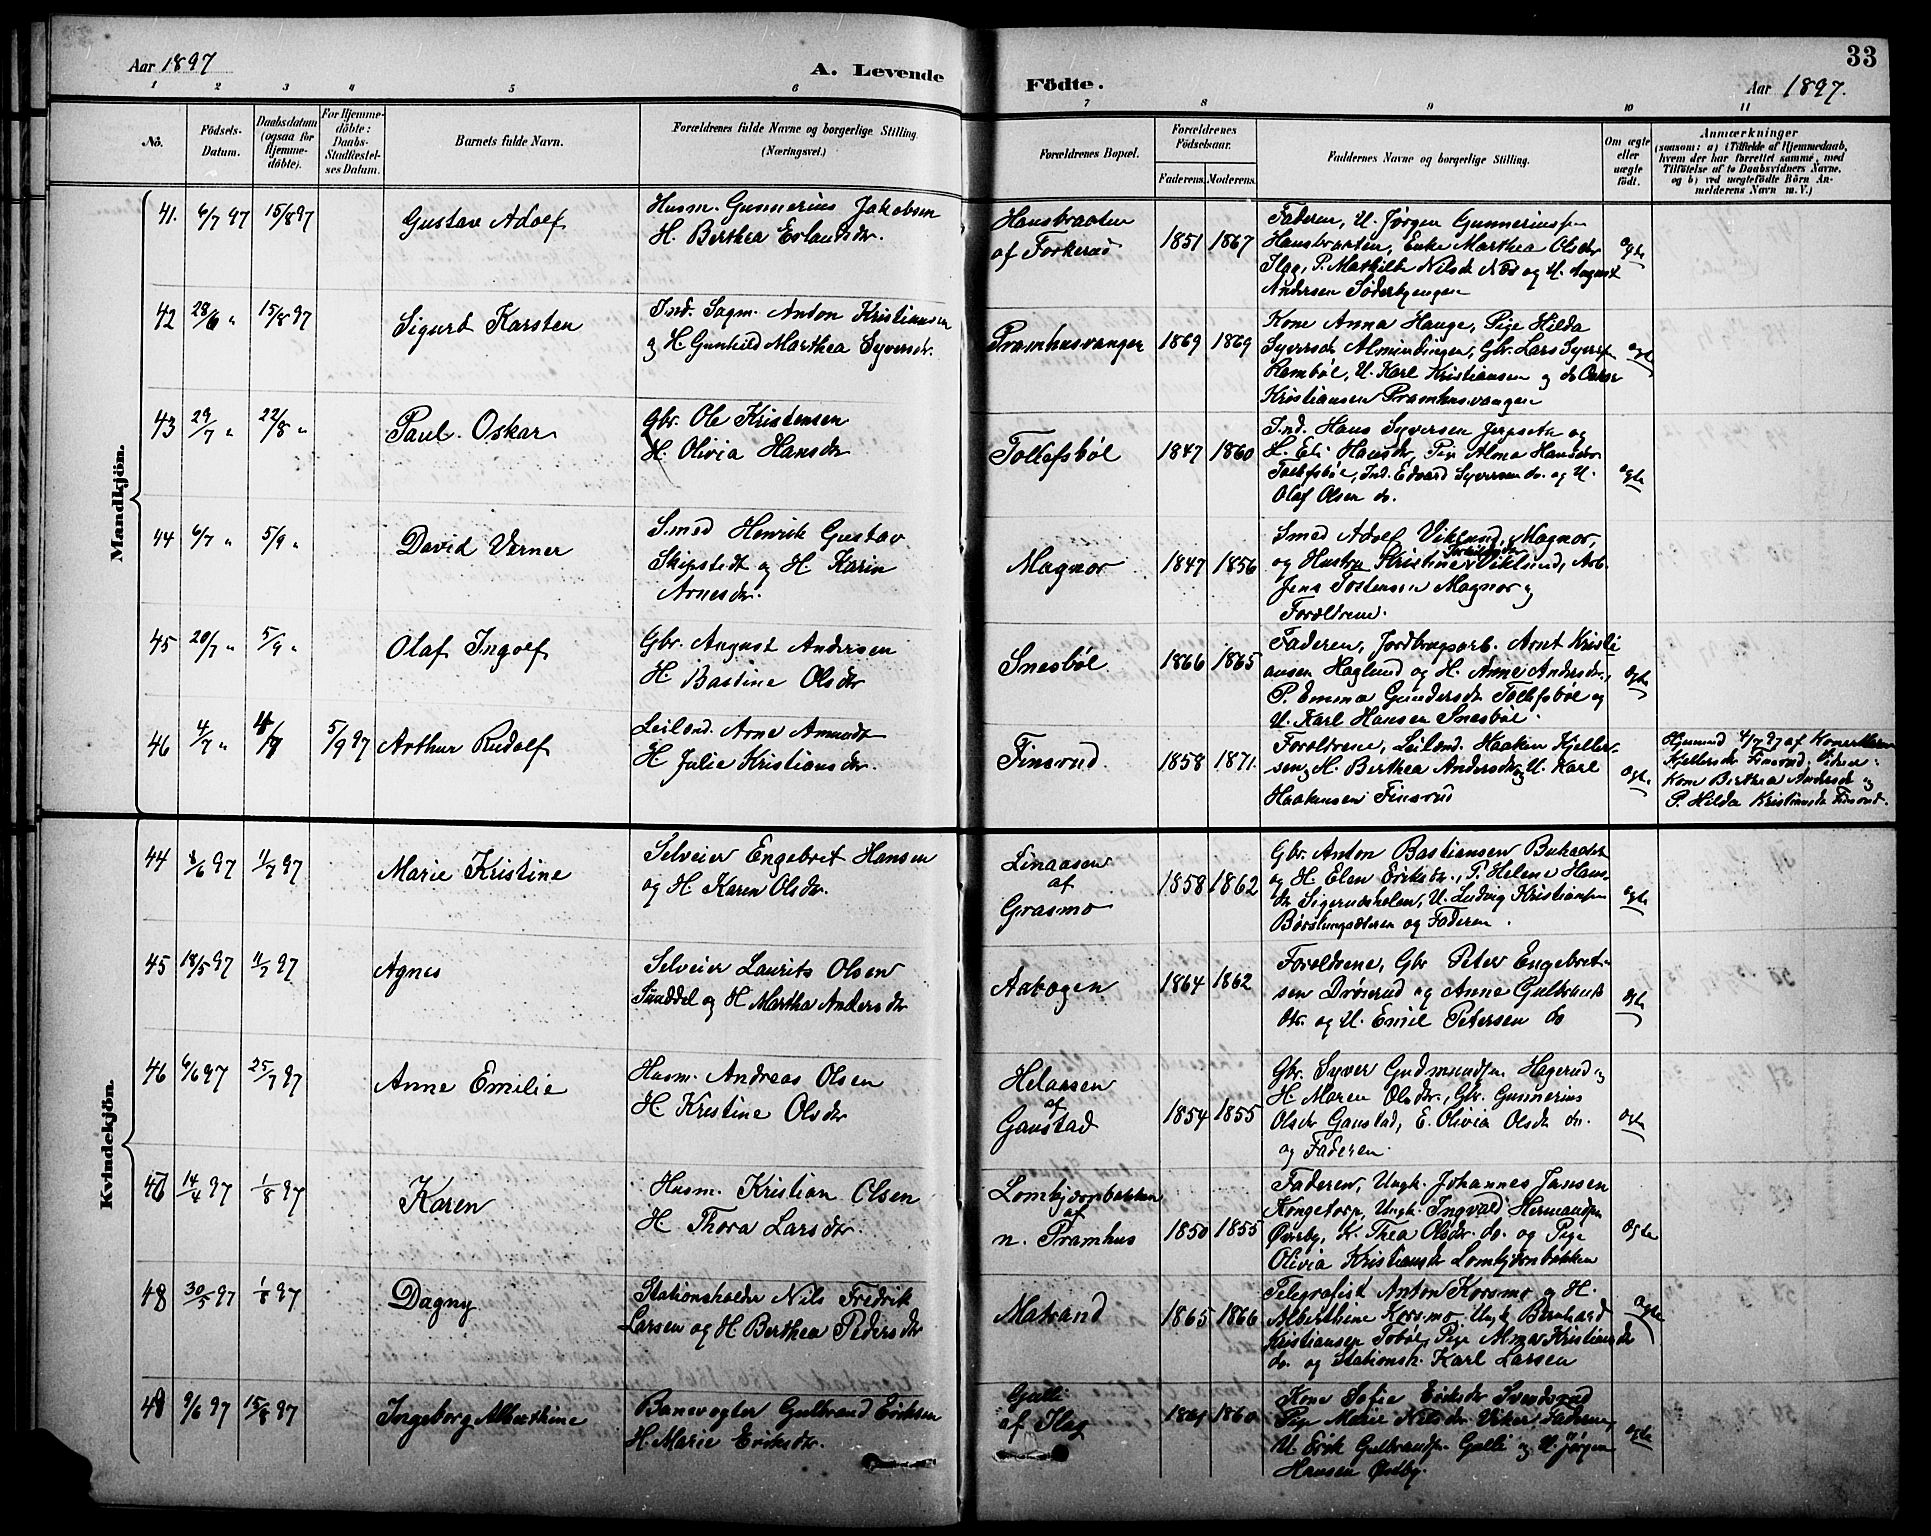 33
Aar 1897
A. Levende Födte.
Aar 1897.
1 2 3 4 5 6 7 8 9 10 11
No.
Födsels-Datum.
Daabsdatum (ogsaa for Hjemmedöbte).
For Hjemmedöbte: Daabs-Stadfæstelses Datum.
Barnets fulde Navn.
Forældrenes fulde Navne og borgerlige Stilling.
(Næringsvei.)
Forældrenes Bopæl.
Forældrenes Födselsaar.
Faderens. Moderens.
Faddernes Navne og borgerlige Stilling.
Om ægte eller uægte födt.
Anmærkninger
(saasom: a) i Tilfælde af Hjemmedaab,
hvem der har forrettet samme, med
Tilföielse af to Daabsvidners Navne,
og b) ved uægtefödte Börn An-
melderens Navn m. V.)
Mandkjön.
41. 6/7 97 15/8 97 Gustav Adolf
Husm. Gunnerius Jakobsen
H. Berthea Erlandsdr.
Hansbraaten
af Torkerud
1851 1867
Faderen, U. Jørgen Gunneriussen
Hansbraaten, Enke Marthea Olsdr
Ilag, P. Mathilde Nilsdr Næs og U. August
Andersen Söderbyengen
ægte
42 28/6 " 15/8 97 Sigurd Karsten
Ind. Sagm. Anton Kristiansen
og H Gunhild Marthea Syversdr.
Pramhusvangen 1869 1869
Kone Anna Hauge, Pige Hilda
Syversdr Almindingen, Gbr. Lars Syvers.
Rambøl, U. Karl Kristiansen og do Oskar
Kristiansen Pramhusvangen
ægte
43 29/7 " 22/8 " Paul Oskar
Gbr. Ole Kristensen
H. Olivia Hansdr
Tollefsbøl 1847 1860
Ind. Hans Syversen
H. Eli Hansdr, Pige Alma Hansdr
Tollefsbøl, Ind. Edvard Syversen do. og U.
Olaf Olsen do.
ægte
44 6/7 " 5/9 " David Verner
Smed Henrik Gustav
Skipstedt og H Karin
Arnesdr.
Magnor 1847 1856
Smed Adolf Viklund, Magnor,
og Hustru Kristine Viklund, Arb.
Jens Tostensen Magnor og
Forældrene.
45 20/7 " 5/9 " Olaf Ingolf
Gbr. August Andersen
H. Bastine Olsdr
Snesbøl 1866 1865
Faderen, Jordbrugsarb. Arnt Kristi
ansen Haglund og H. Anne Andersdr.,
P. Emma Gundersdr Tollefsbøl og
U. Karl Hansen Snesbøl.
ægte
46 4/7 " 4/7 5/9 97 Arthur Rudolf
Leilænd. Arne Amundsen
H Julie Kristiansdr.
Finsrud 1858 1871.
Forældrene, Leilænd. Haaken Kjeller-
sen, H. Berthea Andersdr og U. Karl
Haakensen Finsrud
ægte
Hjemmed 4/7 97 af Kone Maren
Kjellersdr Finsrud. Vidner:
Kone Berthea Andersdr og
P. Hilda Kristiansdr Finsrud.
Kvindekjön.
44 8/6 97 11/7 97 Marie Kristine
Selveier Engebret Hansen
og H Karen Olsdr.
Linaasen
af
Grasmo
1858 1862
Gbr. Anton Bastiansen
og H Elen Eriksdr., P. Helene Hans-
dr Sigerudsholen, U. Ludvig Kristiansen
Børstungsæteren og Faderen.
ægte
45 18/5 97 11/7 97 Agnes
Selveier Laurits Olsen
Sunddel og H Martha Andersdr
Aabogen 1864 1862
Forældrene, Gbr Peter Engebret-
sen Drøserud og Anne Gulbrands
dtr. og U. Emil Petersen do
ægte
46 6/6 97 25/7 97 Anne Emilie
Husm. Andreas Olsen
H Kristine Olsdr
Helaasen
af
Gaustad
1854 1855
Gbr. Syver Gudmundsen Hagerud og
H. Maren Olsdr., Gbr. Gunnerius
Olsdr Gaustad, E. Olivia Olsdr do.
og Faderen.
ægte
47 14/4 97 1/8 97 Karen
Husm. Kristian Olsen
H. Thora Larsdr.
Lomtjernbakken
af
n. Pramhus
1850 1855
Faderen, Ungk. Johannes Jansen
Kongetorp, Ungk. Ingvald Hermandsen
Øverby, Kr. Thea Olsdr. do. og Pige
Olivia Kristiansdr Lomtjernbakken
ægte
48 30/5 97 1/8 97 Dagny
Stationsholder Nils Fredrik
Larsen og H Berthea Pedersdr
Matrand 1865 1866
Telegrafist Anton Korsmo og H.
Alberthine Korsmo, Ungk Bernhard
Kristiansen Tobøl, Pige Alma Kristiansdr
do. og Stationsh. Karl Larsen
ægte
49 9/6 97 15/8 97 Ingeborg Alberthine
Banevogter Gulbrand Eriksen
H. Marie Eriksdr.
Gulli
af Ilag
1861 1860
Kone Sofie Eriksdr Svensrud
Pige Marie Nilsdr Viker, Faderen,
U. Erik Gulbrandsen Gulli og U. Jørgen
Hansen Østby.
ægte